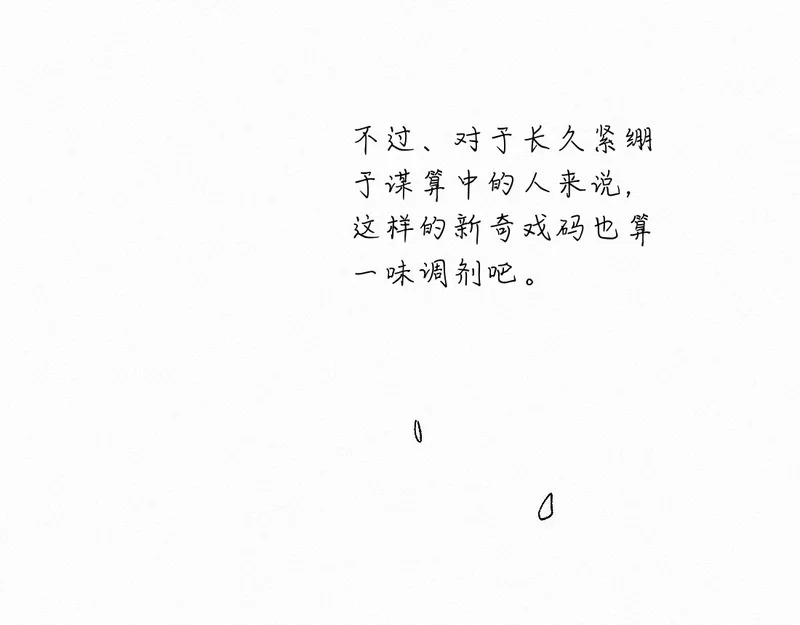 不过、对于长久紧绷
于谋算中的人来说,
这样的新奇戏码也算
一味调剂吧。